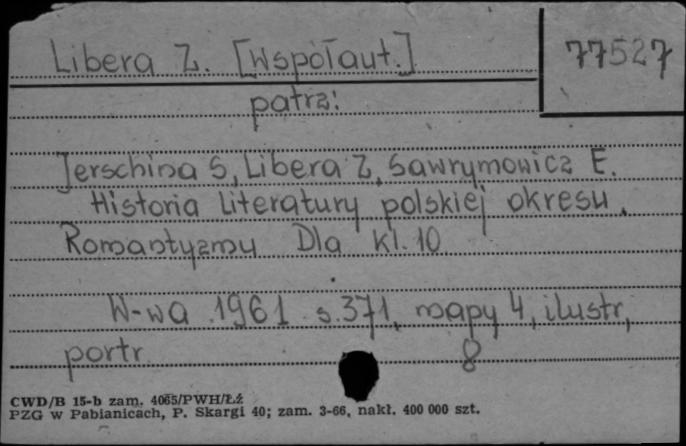 Libera Z. [Współaut.] 77527
patrz:
Jerschina S, Libera Z, Sawrymowicz E.
Historia Literatury polskiej okresu
Romantyzmu Dla kl. 10
W-wa 1961 s. 371, mapy 4, ilustr,
portr. 8
CWD/B 15-b zam. 4065/PWH/Łż
PZG w Pabianicach, P. Skargi 40; zam. 3-66, nakł. 400 000 szt.